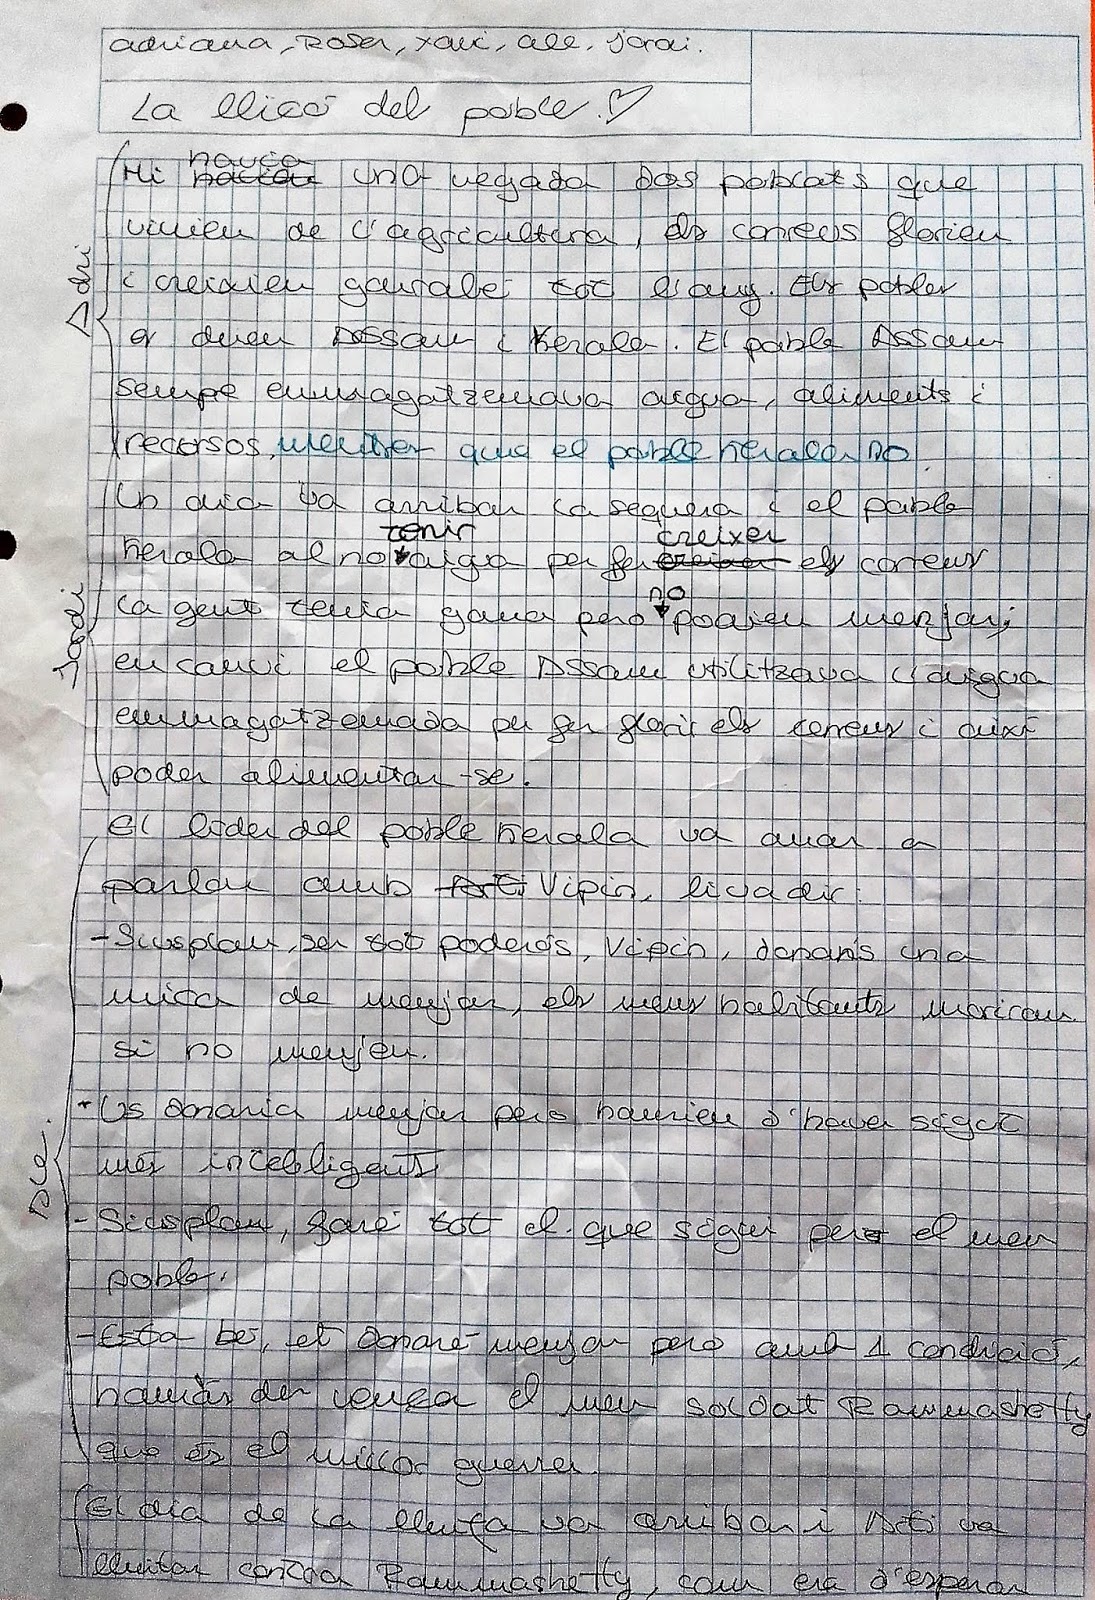 adriana, Roser, xavi, ale, jordi.
La lliçó del poble. ♡
Adri
havia
Hi una vegada dos poblats que
vivien de l'agricultura, els conreus florien
i creixien gairabé tot l'any. Els pobles
es deien Assam i Kerala. El poble Assam
sempe emmagatzemava aigua, aliments i
recursos, mentres que el poble kerala no.
Jordi
Un dia va arribar la sequera i el poble
tenir creixer
kerala al no aigua per fer els conreus
no
la gent tenia gana pero podien menjar,
en canvi el poble Assam utilitzava l'aigua
emmagatzemada per fer florir els conreus i aixi
poder alimentar-se.
Ale.
El lider del poble kerala va anar a
parlar amb Vipin, li va dir:
- Siusplau, ser tot poderós, Vipin, dona'ns una
mica de menjar, els meus habitants moriran
si no mengen.
- Us donaria menjar pero haurieu d'haver sigut
més intelligents
- Siusplau, faré tot el que sigui pero el meu
poble.
- Esta bé, et donaré menjar pero amb 1 condició,
hauràs de vencer el meu soldat Rammashetty
que és el millor guerrer.
El dia de la lluita va arribar i Arti va
lluitar contra Rammashetty, com era d'esperar